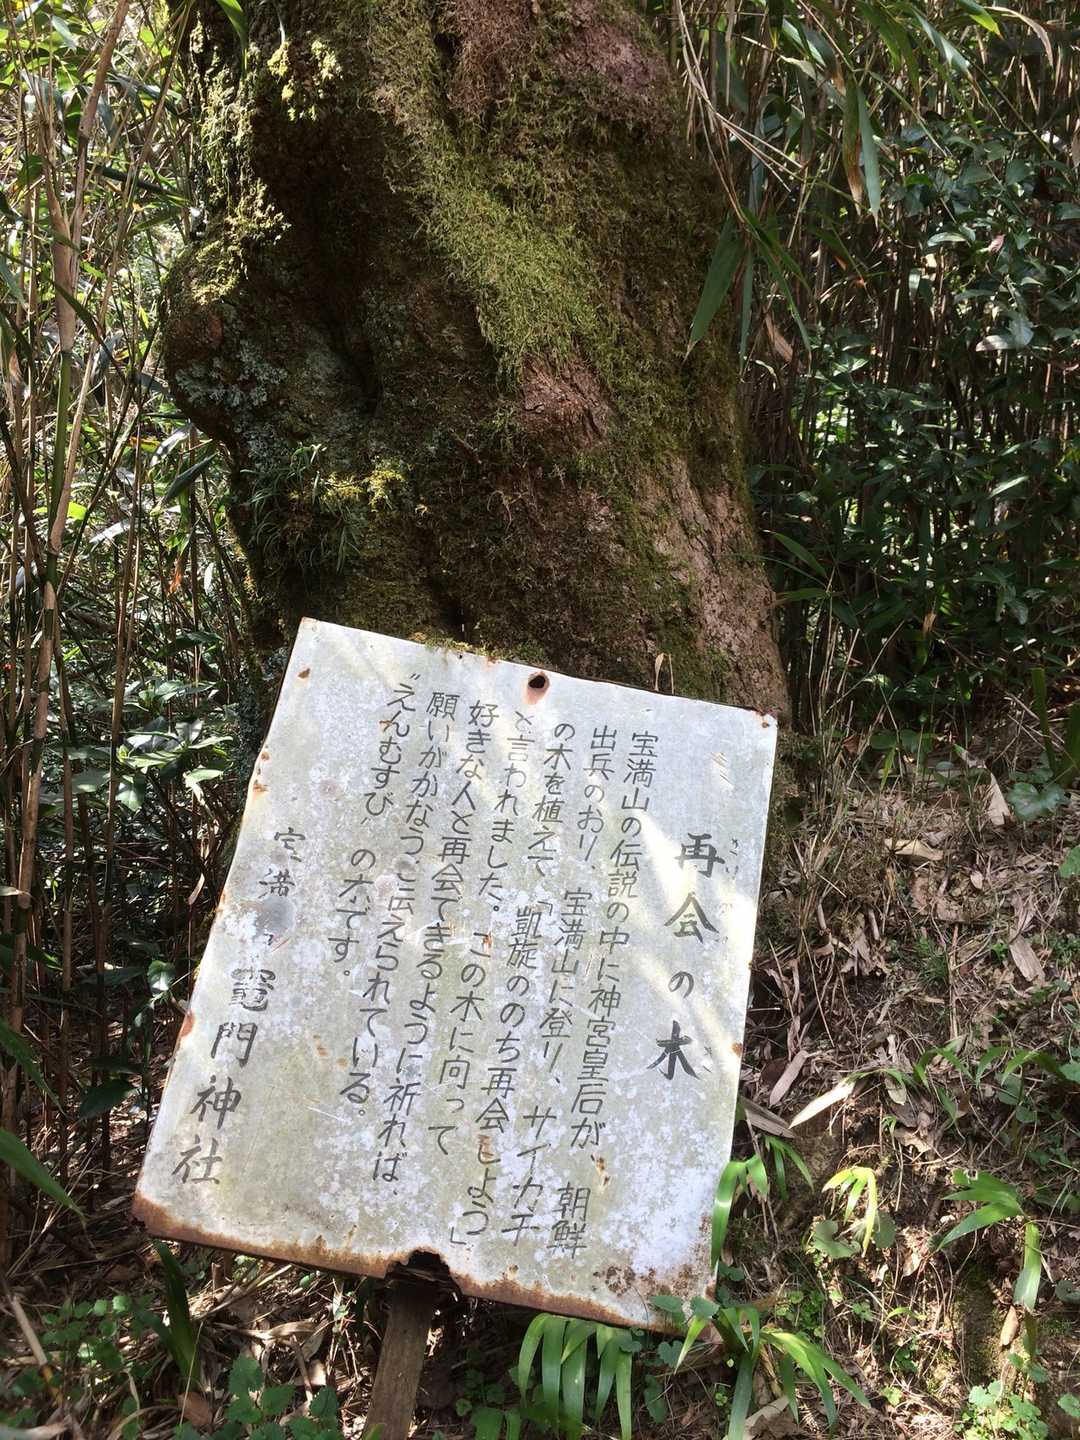 再会の木
宝満山の伝説の中に神宮皇后が、朝鮮
出兵のおり、宝満山に登り、サイカチ
の木を植えて「凱旋ののち再会しよう」
と言われました。この木に向って
好きな人と再会できるように祈れば、
願いがかなうと伝えられている。
“えんむすび”の木です。
宝満山
竈門神社